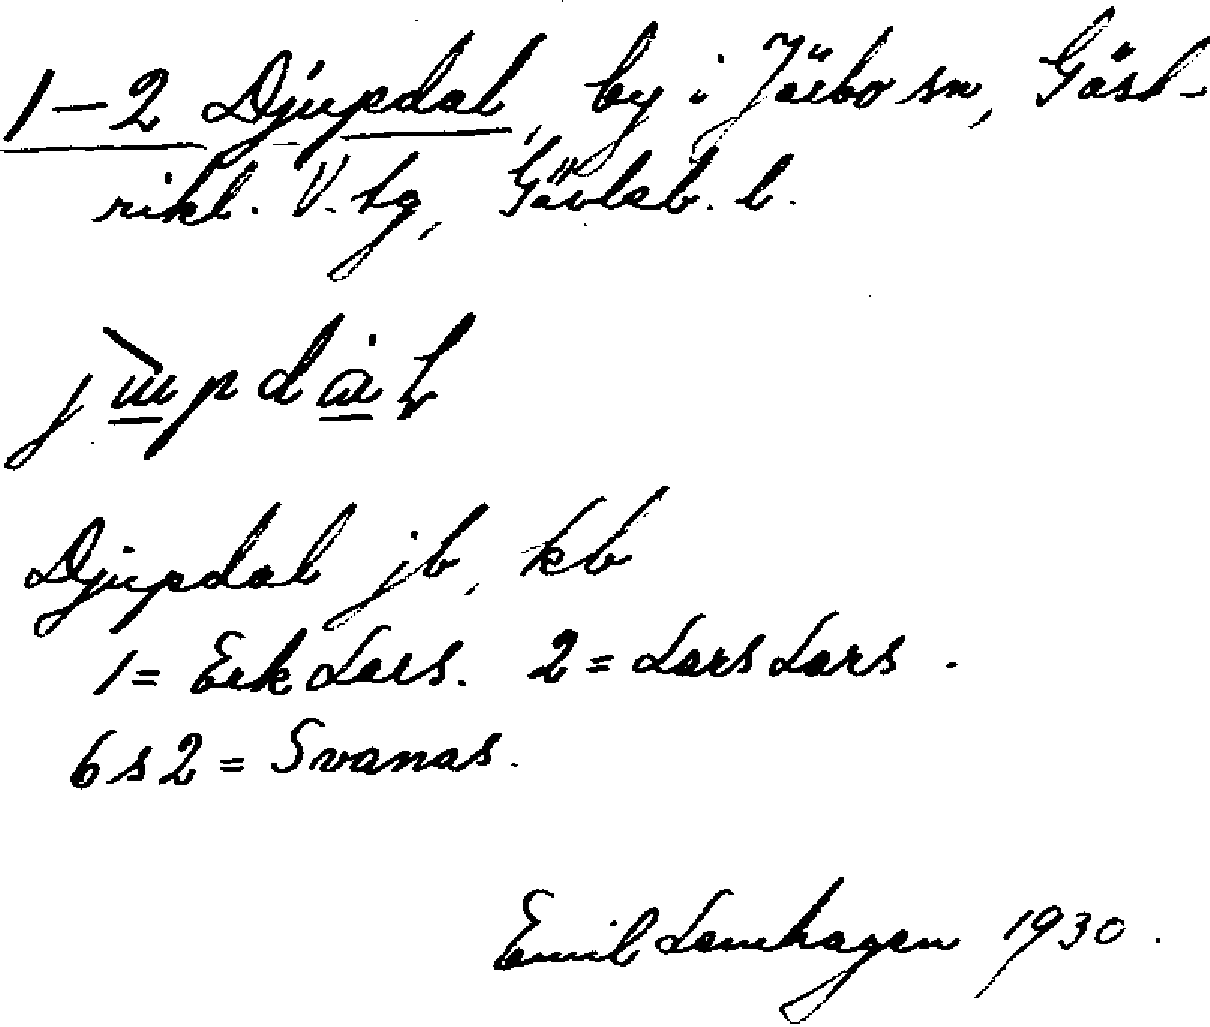 1–2 Djupdal, by i Järbo sn, Gäst-
rikl. V. tg, Gävleb. l.
jùpdàl
Djupdal jb, kb
1 = Erik Lars. 2 = Lars Lars.
6s2 = Svanas.
Emil Lamhagen 1930.